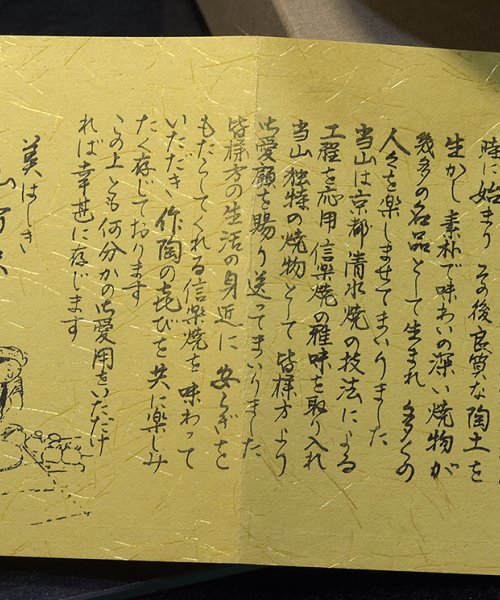 時に始まり その後良質な陶土を
生かし 素朴で味わいの深い焼物が
幾多の名品として生まれ 多くの
人々を楽しませてまいりました
当山は京都清水焼の技法による
工程を応用 信楽焼の雅味を取り入れ
当山独特の焼物として 皆様方より
御愛顧を賜り送ってまいりました
皆様方の生活の身近に 安らぎを
もたらしてくれる信楽焼を 味わって
いただき 作陶の喜びを 共に楽しみ
たく存じております
この上とも何分かの御愛用をいただけ
れば幸甚に存じます
美はしき